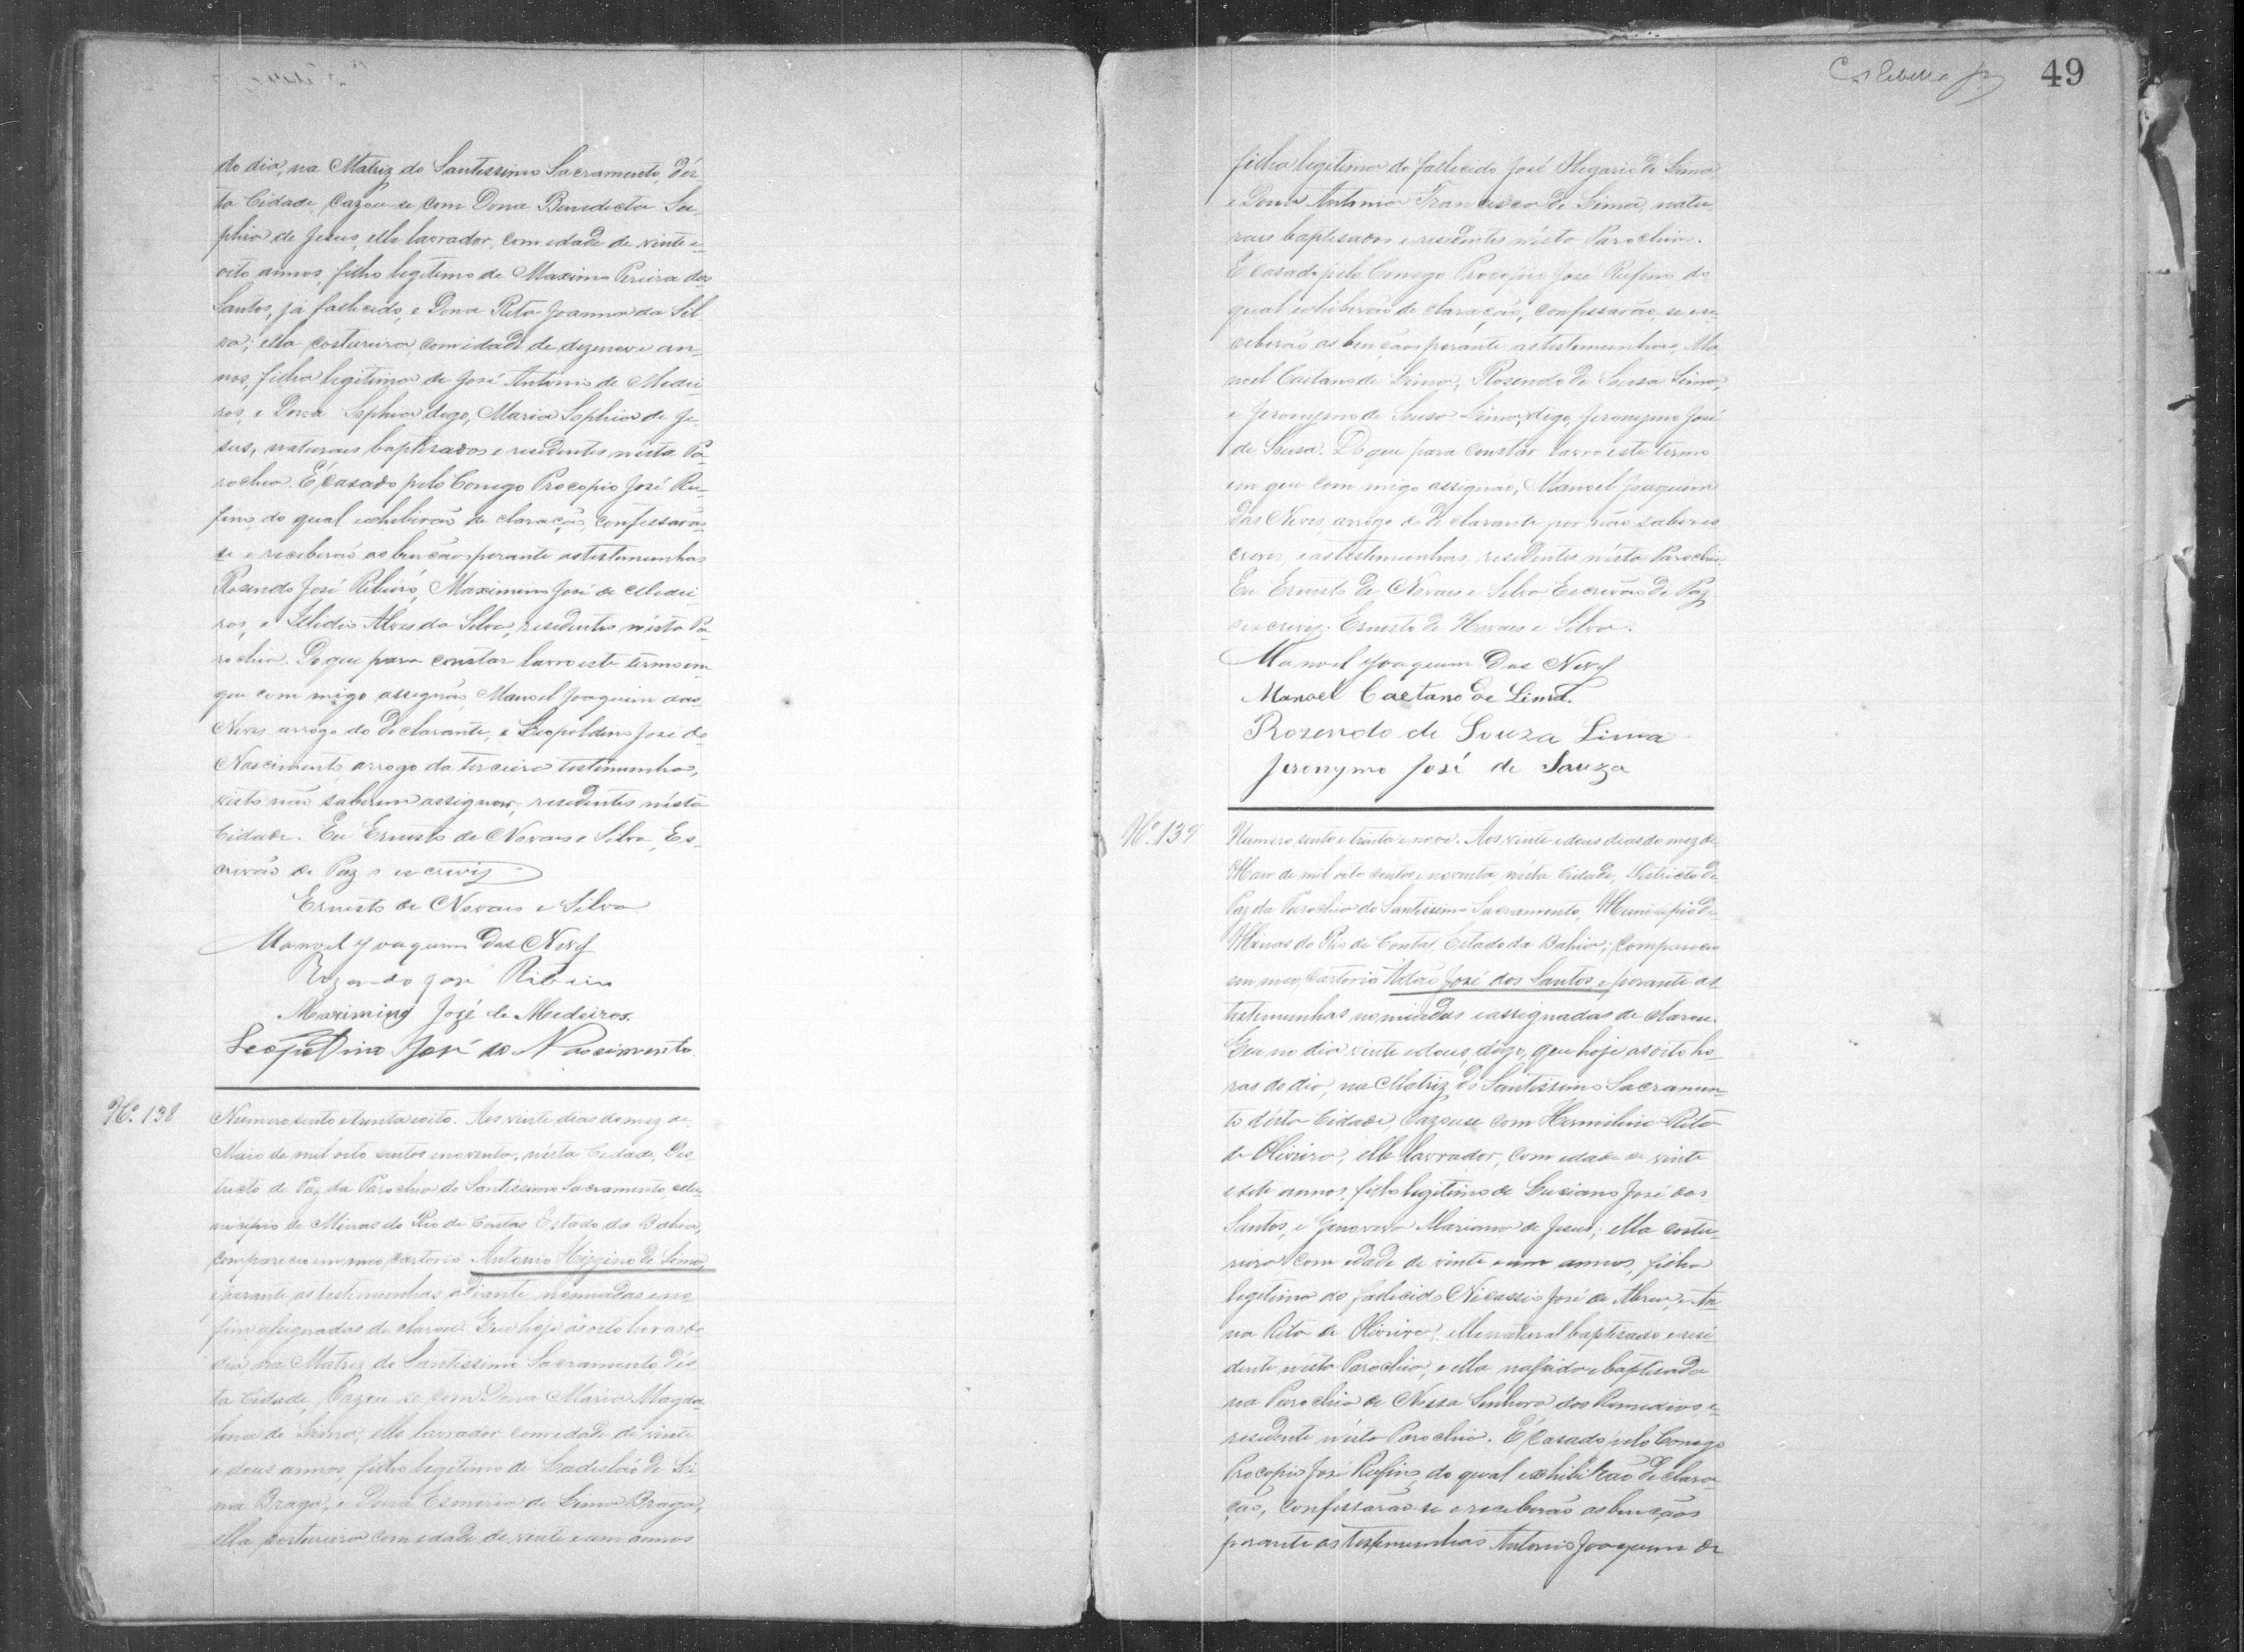 do dia, na Matriz do Santissimo Sacramento, d'es
ta Cidade, Cazou-se com Dona Benedicta So-
phia de Jesus, elle lavrador, com edade de vinte e
oito annos, filho legitimo de Maximo Pereira dos
Santos, já fallecido, e Dona Rita Joanna da Sil
va; ella costureira, com idade de dezenove an-
nos, filha legitima de José Antonio de Medei
ros, e Dona Sophia digo, Maria Sophia de Je-
sus, naturaes baptisados e residentes n'esta Pa-
rochia. É casado pelo Conego Procopio José Ru-
fino, do qual exhibirão declaração, confessarão
se e receberão as bençãos perante as testemunhas
Rosendo José Ribeiro, Maximino José de Medei
ros, e Elidio Alves da Silva, residentes n'esta Pa
rochia. Do que para constar lavro este termo em
que com migo assignão, Manoel Joaquim das
Neves arrogo do declarante, e Leopoldino José do
Nascimento arrogo da terceira testemunha,
visto não saberem assignar, residentes n'esta
Cidade. Eu Ernesto de Novaes e Silva, Es-
crivão de Paz o escrevy
Ernesto de Novaes e Silva
Manoel Joaquim das Neves
Rozendo José Ribeiro
Maximino Jozé de Medeiros.
Leopoldino José do Nascimento
Nº 138
Numero sento e trinta e oito. Aos vinte dias do mez de
Maio de mil oito sentos e noventa, n'esta Cidade, Dis
tricto de Paz da Parochia do Santissimo Sacramento, Mu
nicipio de Minas do Rio de Contas Estado da Bahia,
compareceu em meo cartorio Antonio Higgino de Lima,
e perante as testemunhas adiante nomiadas e no
fim assignadas declarou. Que hoje ás oito horas do
dia na Matriz do Santissimo Sacramento d'es
ta Cidade, Cazou-se com Dona Maria Magda
lena de Lima, elle lavrador com edade de vinte
e dous annos, filho legitimo de Ladislão de Li
ma Braga, e Dona Esmeria de Lima Braga,
ella costureira com edade de vinte e um annos
49
filha legitima do fallecido José Olegario de Lima
e Dona Antonia Francisca de Lima, natu-
raes baptisados e residentes n'esta Parochia.
É casado pelo Conego Procopio José Rufino do
qual exhibirão declaração, confessarão-se e re
ceberão as bençãos perante as testemunhas, Ma
noel Caetano de Lima, Rosendo de Sousa Lima,
e Jeronymo de Sousa Lima, digo, Jeronymo José
de Sousa. Do que para constar lavro este termo
em que com migo assignão, Manoel Joaquim
das Neves arrogo do declarante por não saber es
crever, e as testemunhas residentes n'esta Parochia
Eu Ernesto de Novaes e Silva Escrivão de Paz
o escrevy. Ernesto de Novaes e Silva.
Manoel Joaquim das Neves
Manoel Caetano de Lima.
Rozendo de Souza Lima
Jeronymo José de Souza
Nº 139
Numero sento e trinta e nove. Aos vinte e dous dias do mez de
Maio de mil oito sentos e noventa, n'esta Cidade, Districto de
Paz da Parochia do Santissimo Sacramento, Municipio de
Minas do Rio de Contas, Estado da Bahia; compareceu
em meo cartorio Adão José dos Santos, e perante as
testemunhas nomiadas e assignadas declarou.
Que no dia vinte e dous, digo, que hoje as oito ho-
ras do dia, na Matriz do Santissimo Sacramen-
to d'esta Cidade, Cazou-se com Hermilina Rita
de Oliveira, elle lavrador, com edade de vinte
e sete annos, filho legitimo de Luciano José dos
Santos, e Genoveva Marianna de Jesus; ella costu-
reira com edade de vinte e um annos, filha
legitima do fallecido Nicassio José de Abreu, e An
na Rita de Oliveira, elle natural baptisado e resi
dente n'esta Parochia, e ella nascida e baptisada
na Parochia de Nossa Senhora dos Remedios, e
residente n'esta Parochia. É casado pelo Conego
Procopio José Rufino, do qual exhibirão declara
ção, confessarão-se e receberão as bençãos
perante as testemunhas Antonio Joaquim de